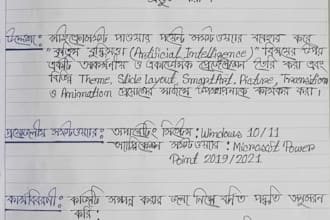 উদ্দেশ্য: মাইক্রোসফট পাওয়ার পয়েন্ট সফটওয়্যার ব্যবহার করে
"কৃত্রিম বুদ্ধিমত্তা (Artificial Intelligence)" বিষয়ের উপর
একটি আকর্ষণীয় ও একাডেমিক প্রেজেন্টেশন তৈরি করা এবং
Theme, Slide Layout, SmartArt, Picture, Transition
ও Animation প্রয়োগের মাধ্যমে উপস্থাপনাকে কার্যকর করা।
প্রয়োজনীয় সফটওয়্যার: অপারেটিং সিস্টেম: Windows 10/11
সফটওয়্যার: Microsoft Power
Point 2019/2021
কার্যবিবরণী: কাজটি সম্পন্ন করার জন্য নিম্নে বর্ণিত পদ্ধতি অনুসরণ
করি: